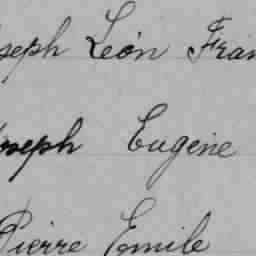 seph Léon Fran
oseph Eugène
Pierre Emile